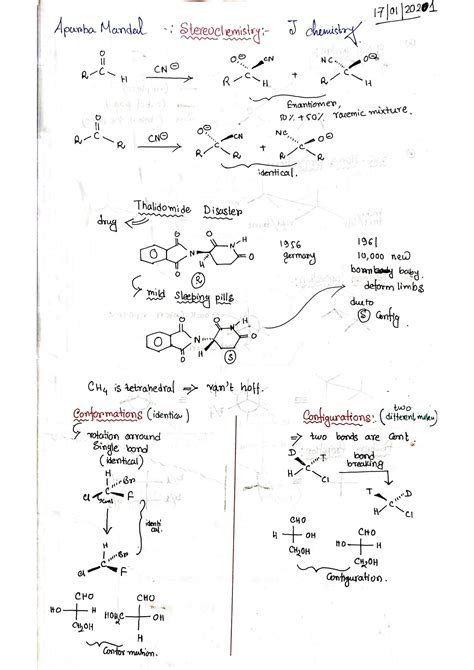 17/01/2021
Apurba Mandal -: Stereochemistry:- J chemistry.
O
R C H
CN⊖
O⊖ CN
R C H
+
NC O⊖
R C H
Enantiomer,
50% + 50% racemic mixture.
O
R C R
CN⊖
O⊖ CN
R C R
+
NC O⊖
R C R
identical.
Thalidomide Disaster
drug
O O N O N H O H
R
1956
germany
1961
10,000 new
born baby.
deform limbs
due to
S Config
mild sleeping pills
O O N O N H O H
S
CH4 is tetrahedral ⇒ van't hoff.
Conformations (identical)
rotation arround
Single bond
(identical)
H
C Br
Cl F
H
C Br
Cl F
identical.
CHO
HO H
CH2OH
CHO
HOH2C OH
H
Conformation.
Configurations: (two different molecu)
⇒ two bonds are cont.
D T
C
H Cl
bond
breaking
T D
C
H Cl
CHO
H OH
CH2OH
CHO
HO H
CH2OH
Configuration.